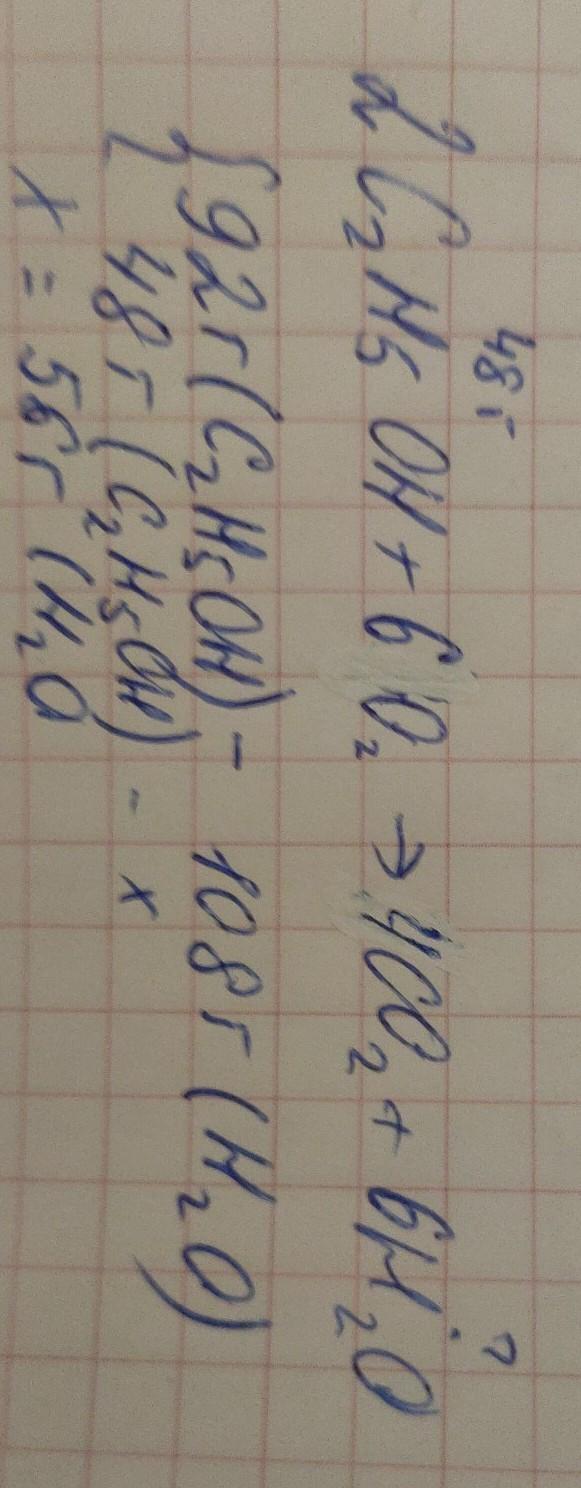 48г ?
2C₂H₅OH + 6O₂ → 4CO₂ + 6H₂O
{ 92г (C₂H₅OH) - 108г (H₂O)
48г (C₂H₅OH) - x
x = 56г (H₂O